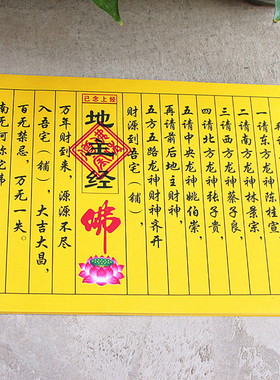 一请东方龙神陈桂宣
二请南方龙神林景宗
三请西方龙神蔡子良
四请北方龙神张子贵
五请中央龙神姚伯崇
再请前后地主财神
五方五路龙神财神齐开
财源到吾宅(铺)
己念上经
地主经
佛
万年财到来，源源不尽
入吾宅(铺)，大吉大昌，
百无禁忌，万无一失。
南无阿弥陀佛